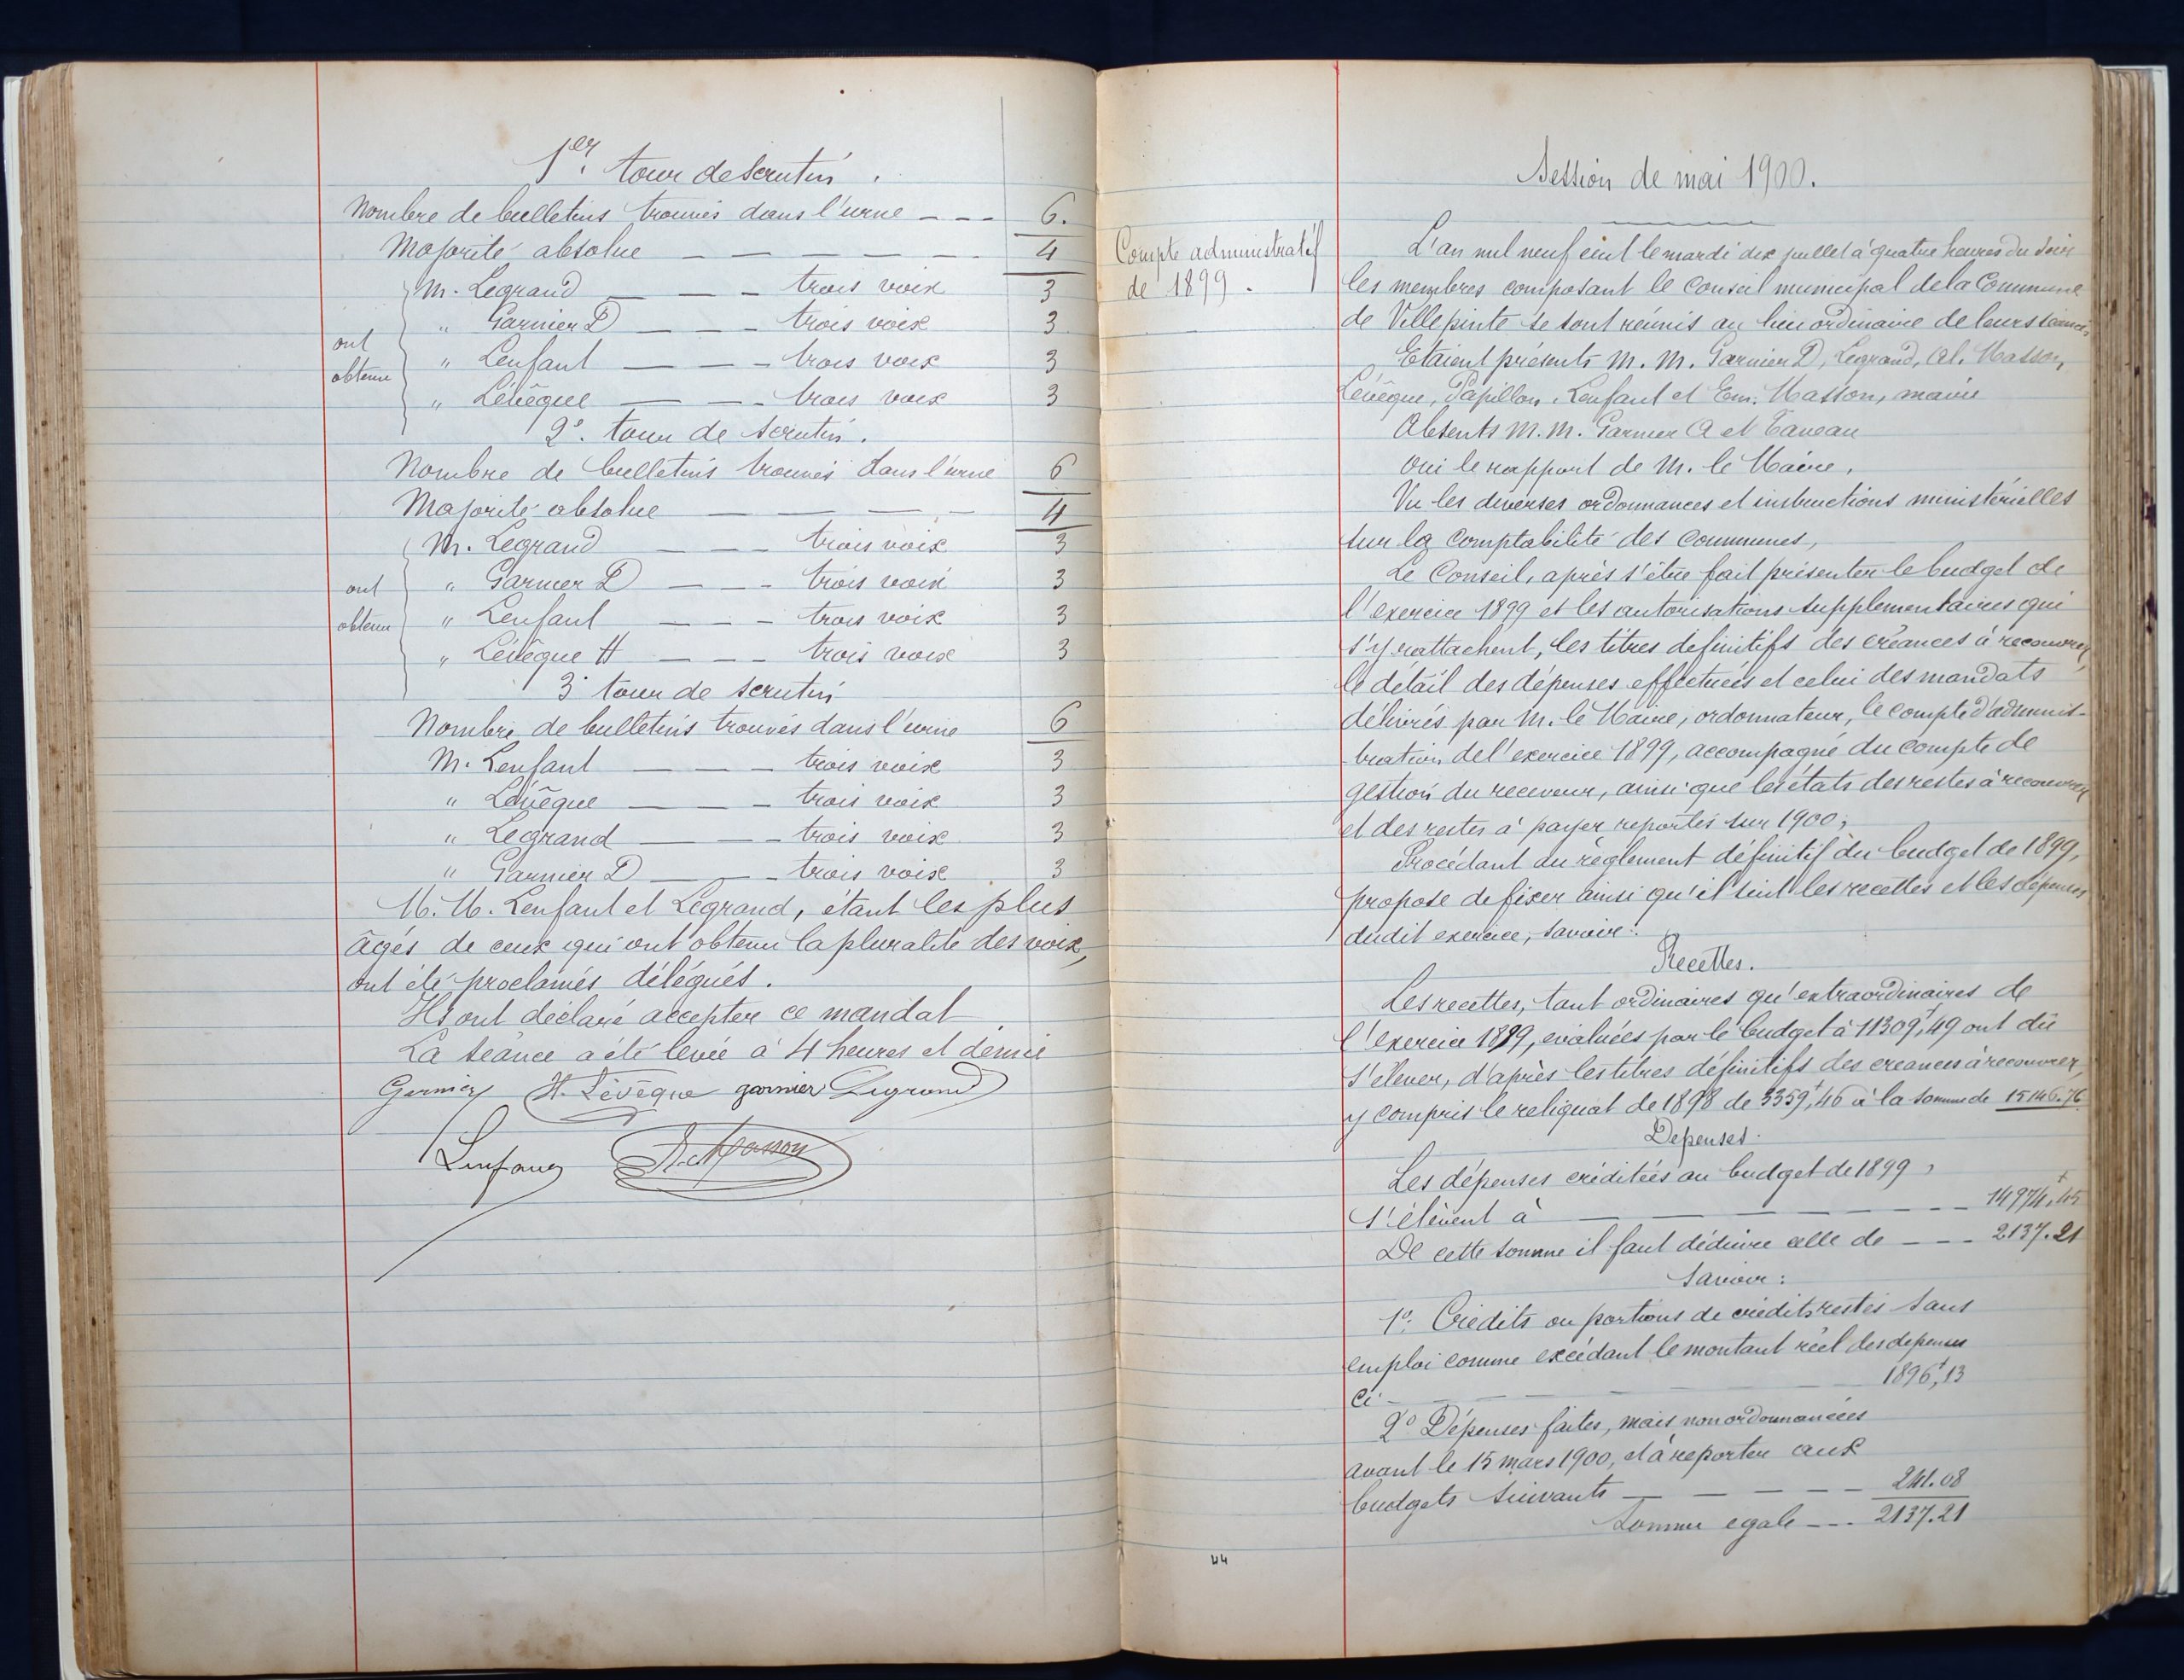 1er. tour de scrutin.
Nombre de bulletins trouvés dans l'urne - - - 6.
Majorité absolue - - - - - - 4
M. Legrand - - - trois voix 3
" Garnier D - - - trois voix 3
ont
" Lenfant - - - trois voix 3
obtenu
" Lévêque - - - trois voix 3
2e. tour de scrutin.
Nombre de bulletins trouvés dans l'urne 6
Majorité absolue - - - - 4
M. Legrand - - - trois voix 3
ont " Garnier D - - - trois voix 3
obtenu " Lenfant - - - trois voix 3
" Lévêque H - - - trois voix 3
3e tour de scrutin
Nombre de bulletins trouvés dans l'urne 6
M. Lenfant - - - trois voix 3
" Lévêque - - - trois voix 3
" Legrand - - - trois voix 3
" Garnier D - - - trois voix 3
M. M. Lenfant et Legrand, étant les plus
âgés de ceux qui ont obtenu la pluralité des voix,
ont été proclamés délégués.
Ils ont déclaré accepter ce mandat.
La séance a été levée à 4 heures et demie
Garnier H. Lévêque garnier Legrand
Lenfant Masson
Session de mai 1900.
Compte administratif
de 1899.
L'an mil neuf cent le mardi dix juillet à quatre heures du soir
les membres composant le Conseil municipal de la Commune
de Villepinte se sont réunis au lieu ordinaire de leurs séances
Etaient présents M. M. Garnier D, Legrand, Al. Masson,
Lévêque, Papillon, Lenfant et Em. Masson, maire
Absents M. M. Garnier A et Taveau
Oui le rapport de M. le Maire,
Vu les diverses ordonnances et instructions ministérielles
sur la comptabilité des Communes,
Le Conseil, après s'être fait présenter le budget de
l'exercice 1899 et les autorisations supplémentaires qui
s'y rattachent, les titres définitifs des créances à recouvrer,
le détail des dépenses effectuées et celui des mandats
délivrés par M. le Maire, ordonnateur, le compte d'adminis-
tration de l'exercice 1899, accompagné du compte de
gestion du receveur, ainsi que les états des restes à recouvrer
et des restes à payer reportés sur 1900;
Procédant au règlement définitif du budget de 1899,
propose de fixer ainsi qu'il suit les recettes et les dépenses
dudit exercice, savoir:
Recettes.
Les recettes, tant ordinaires qu'extraordinaires de
l'exercice 1899, évaluées par le budget à 11309f,49 ont dû
s'élever, d'après les titres définitifs des créances à recouvrer,
y compris le reliquat de 1898 de 3359f,46 à la somme de 15146.76
Dépenses.
Les dépenses créditées au budget de 1899,
s'élèvent à - - - - - - - - 14974f,45
De cette somme il faut déduire celle de - - - 2137.21
Savoir:
1o. Crédits ou portions de crédits restés sans
emploi comme excédant le montant réel des dépenses
Ci - - - - - 1896f,13
2o Dépenses faites, mais non ordonnancées
avant le 15 mars 1900, et à reporter aux
budgets suivants - - - - - 241.08
Somme égale - - - 2137.21
44